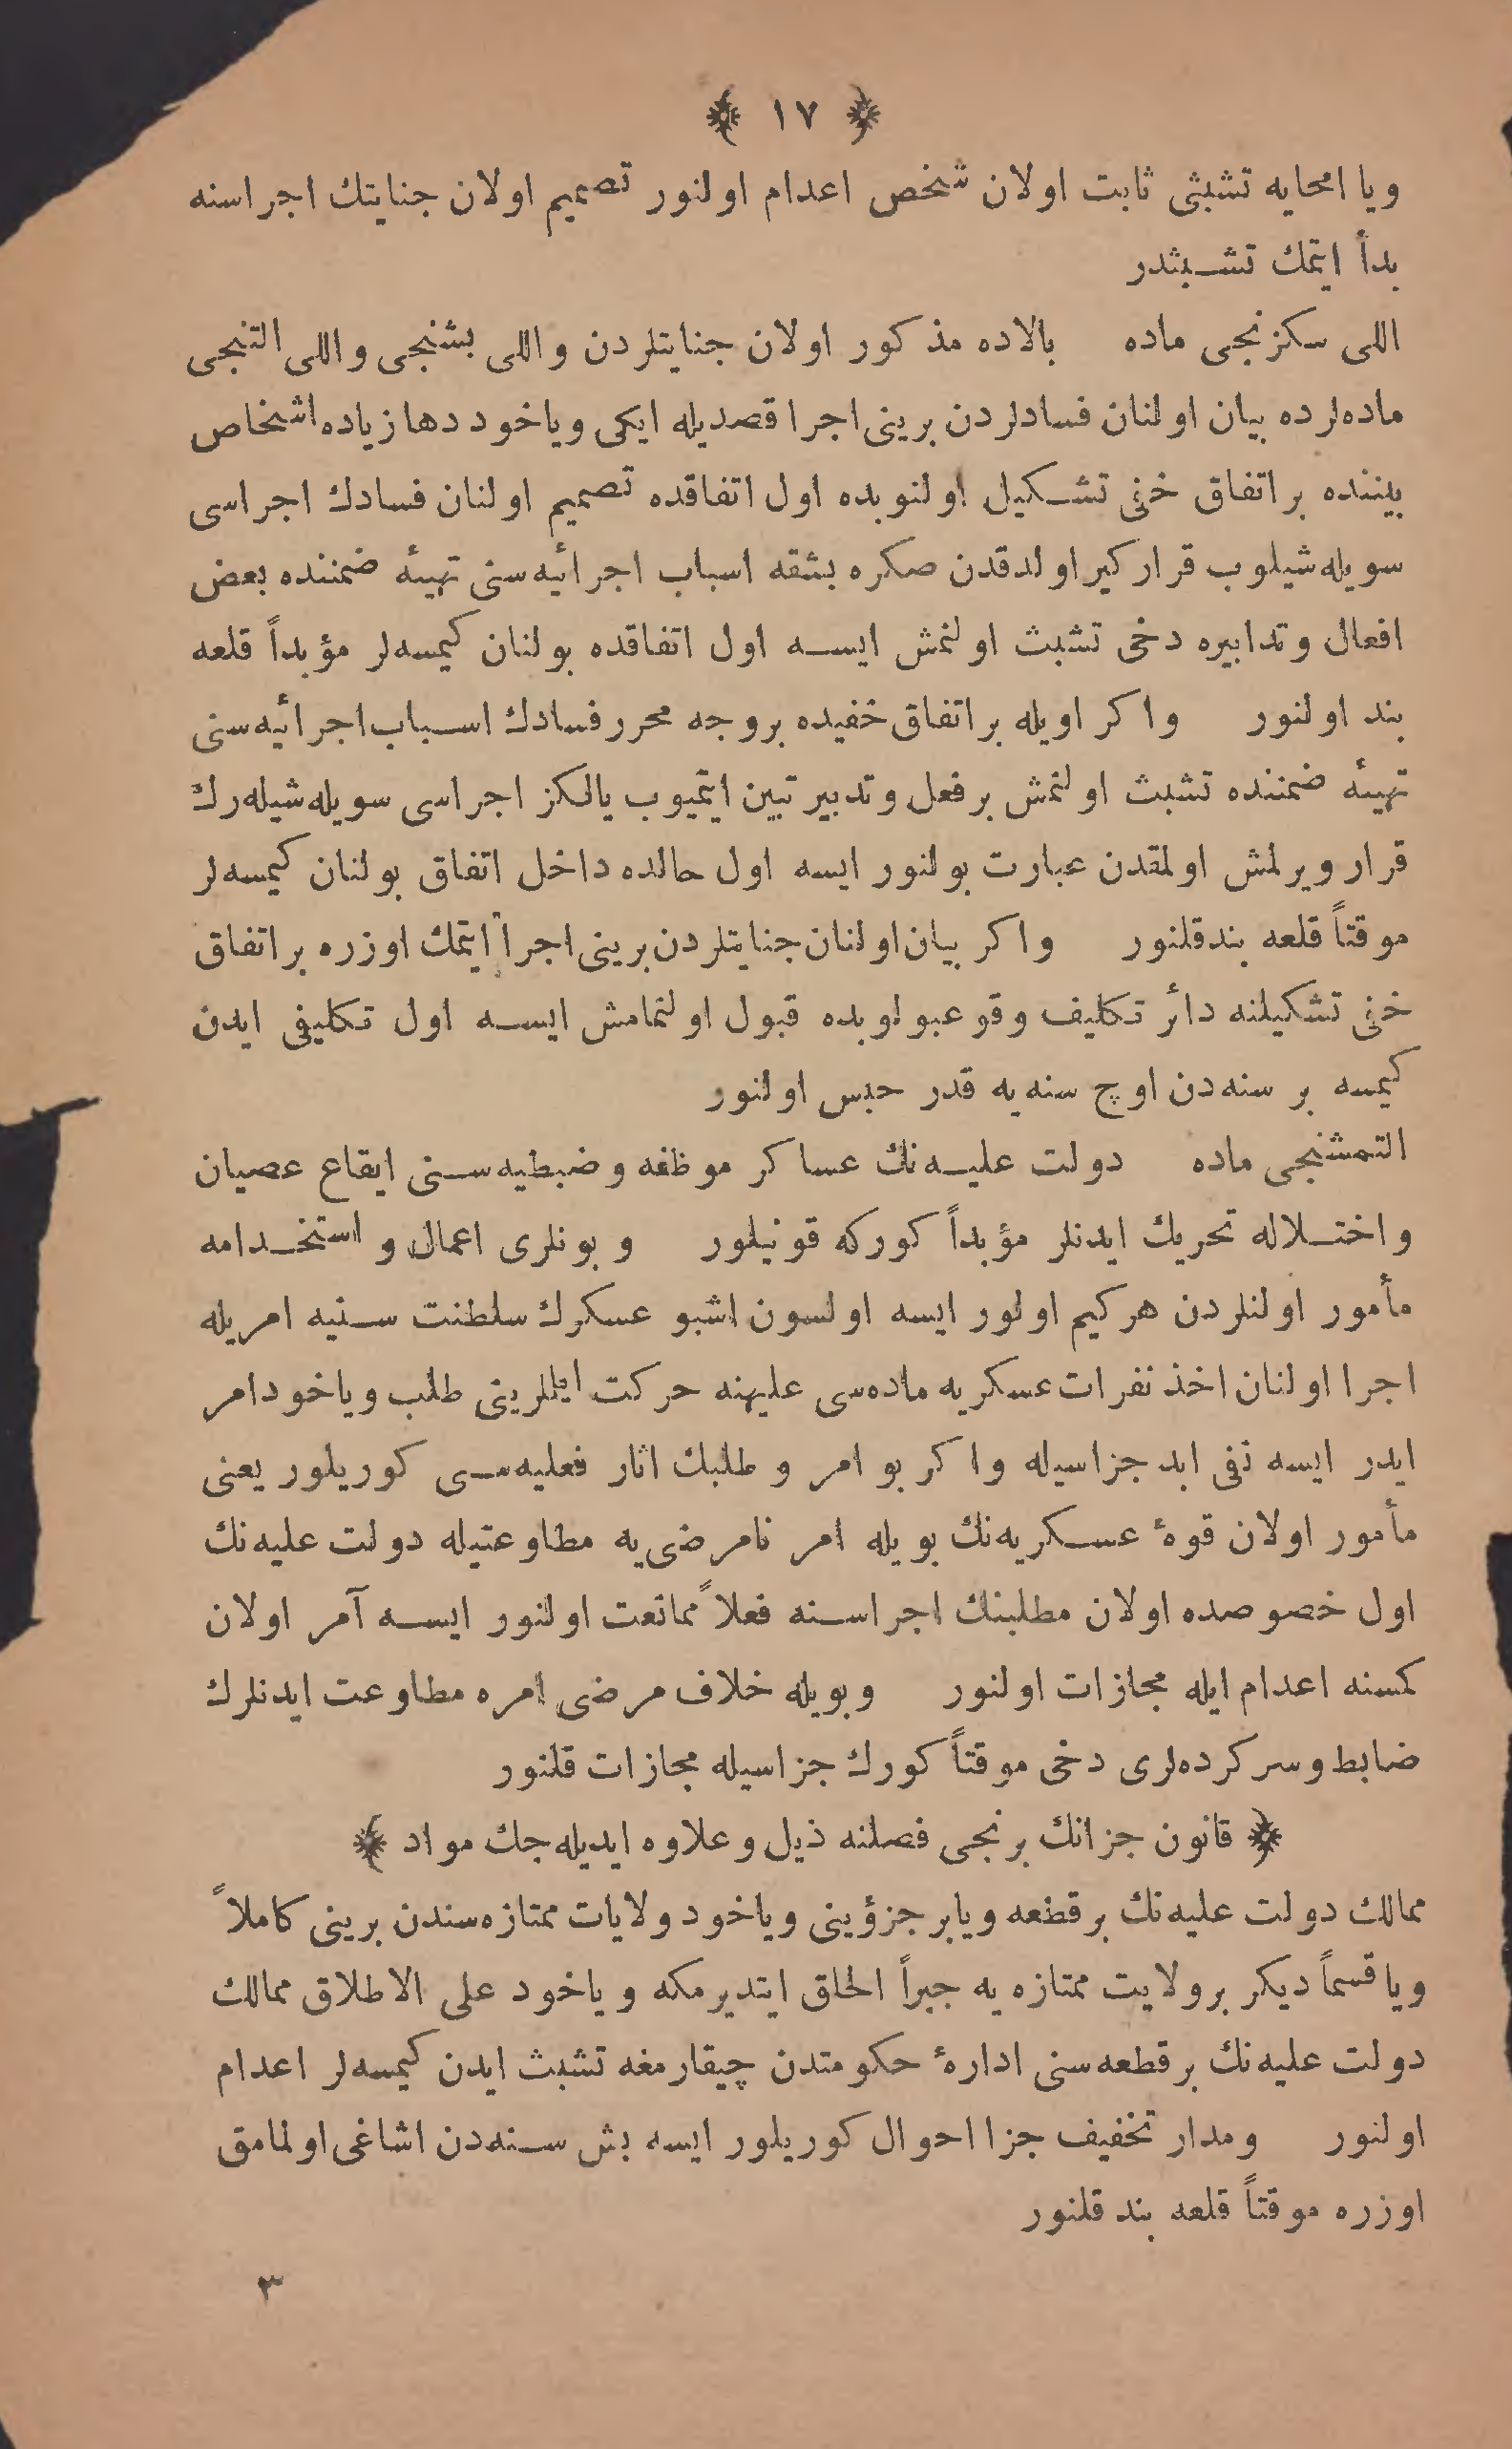 ﴿ ١٧ ﴾
ويا امحايه تشبثى ثابت اولان شخص اعدام اولنور تصميم اولان جنايتك اجراسنه
بدأ ايتمك تشبثدر
اللى سكزنجى ماده بالاده مذكور اولان جنايتلردن واللى بشنجى واللى التنجى
ماده‌لرده بيان اولنان فسادلردن برينى اجرا قصديله ايكى وياخود دها زياده اشخاص
بيننده بر اتفاق خفى تشكيل اولنوبده اول اتفاقده تصميم اولنان فسادك اجراسى
سويله‌شيلوب قراركير اولدقدن صكره بشقه اسباب اجرائيه‌سنى تهيئه ضمننده بعض
افعال وتدابيره دخى تشبث اولنمش ايسه اول اتفاقده بولنان كيمسه‌لر مؤبداً قلعه
بند اولنور واكر اويله بر اتفاق خفيده بروجه محرر فسادك اسباب اجرائيه‌سنى
تهيئه ضمننده تشبث اولنمش بر فعل وتدبير تبين ايتميوب يالكز اجراسى سويله‌شيله‌رك
قرار ويرلمش اولمقدن عبارت بولنور ايسه اول حالده داخل اتفاق بولنان كيمسه‌لر
موقتاً قلعه بند قلنور واكر بيان اولنان جنايتلردن برينى اجرا ايتمك اوزره بر اتفاق
خفى تشكيلنه دائر تكليف وقوعبولوبده قبول اولنمامش ايسه اول تكليفى ايدن
كيمسه بر سنه‌دن اوچ سنه‌يه قدر حبس اولنور
التمشنجى ماده دولت عليه‌نك عساكر موظفه وضبطيه‌سنى ايقاع عصيان
واختلاله تحريك ايدنلر مؤبداً كوركه قونيلور وبونلرى اعمال واستخدامه
مأمور اولنلردن هر كيم اولور ايسه اولسون اشبو عسكرك سلطنت سنيه امريله
اجرا اولنان اخذ نفرات عسكريه ماده‌سى عليهنه حركت ايتلرينى طلب وياخود امر
ايدر ايسه نفى ابد جزاسيله واكر بو امر و طلبك اثار فعليه‌سى كوريلور يعنى
مأمور اولان قوۀ عسكريه‌نك بويله امر نامرضى‌يه مطاوعتيله دولت عليه‌نك
اول خصوصده اولان مطلبنك اجراسنه فعلاً ممانعت اولنور ايسه آمر اولان
كسنه اعدام ايله مجازات اولنور وبويله خلاف مرضى امره مطاوعت ايدنلرك
ضابط وسركرده‌لرى دخى موقتاً كورك جزاسيله مجازات قلنور
﴿ قانون جزانك برنجى فصلنه ذيل وعلاوه ايديله‌جك مواد ﴾
ممالك دولت عليه‌نك بر قطعه ويا بر جزؤينى وياخود ولايات ممتازه‌سندن برينى كاملاً
ويا قسماً ديكر بر ولايت ممتازه‌يه جبراً الحاق ايتديرمكه وياخود على الاطلاق ممالك
دولت عليه‌نك بر قطعه‌سنى ادارۀ حكومتدن چيقارمغه تشبث ايدن كيمسه‌لر اعدام
اولنور ومدار تخفيف جزا احوال كوريلور ايسه بش سنه‌دن اشاغى اولمامق
اوزره موقتاً قلعه بند قلنور
٣